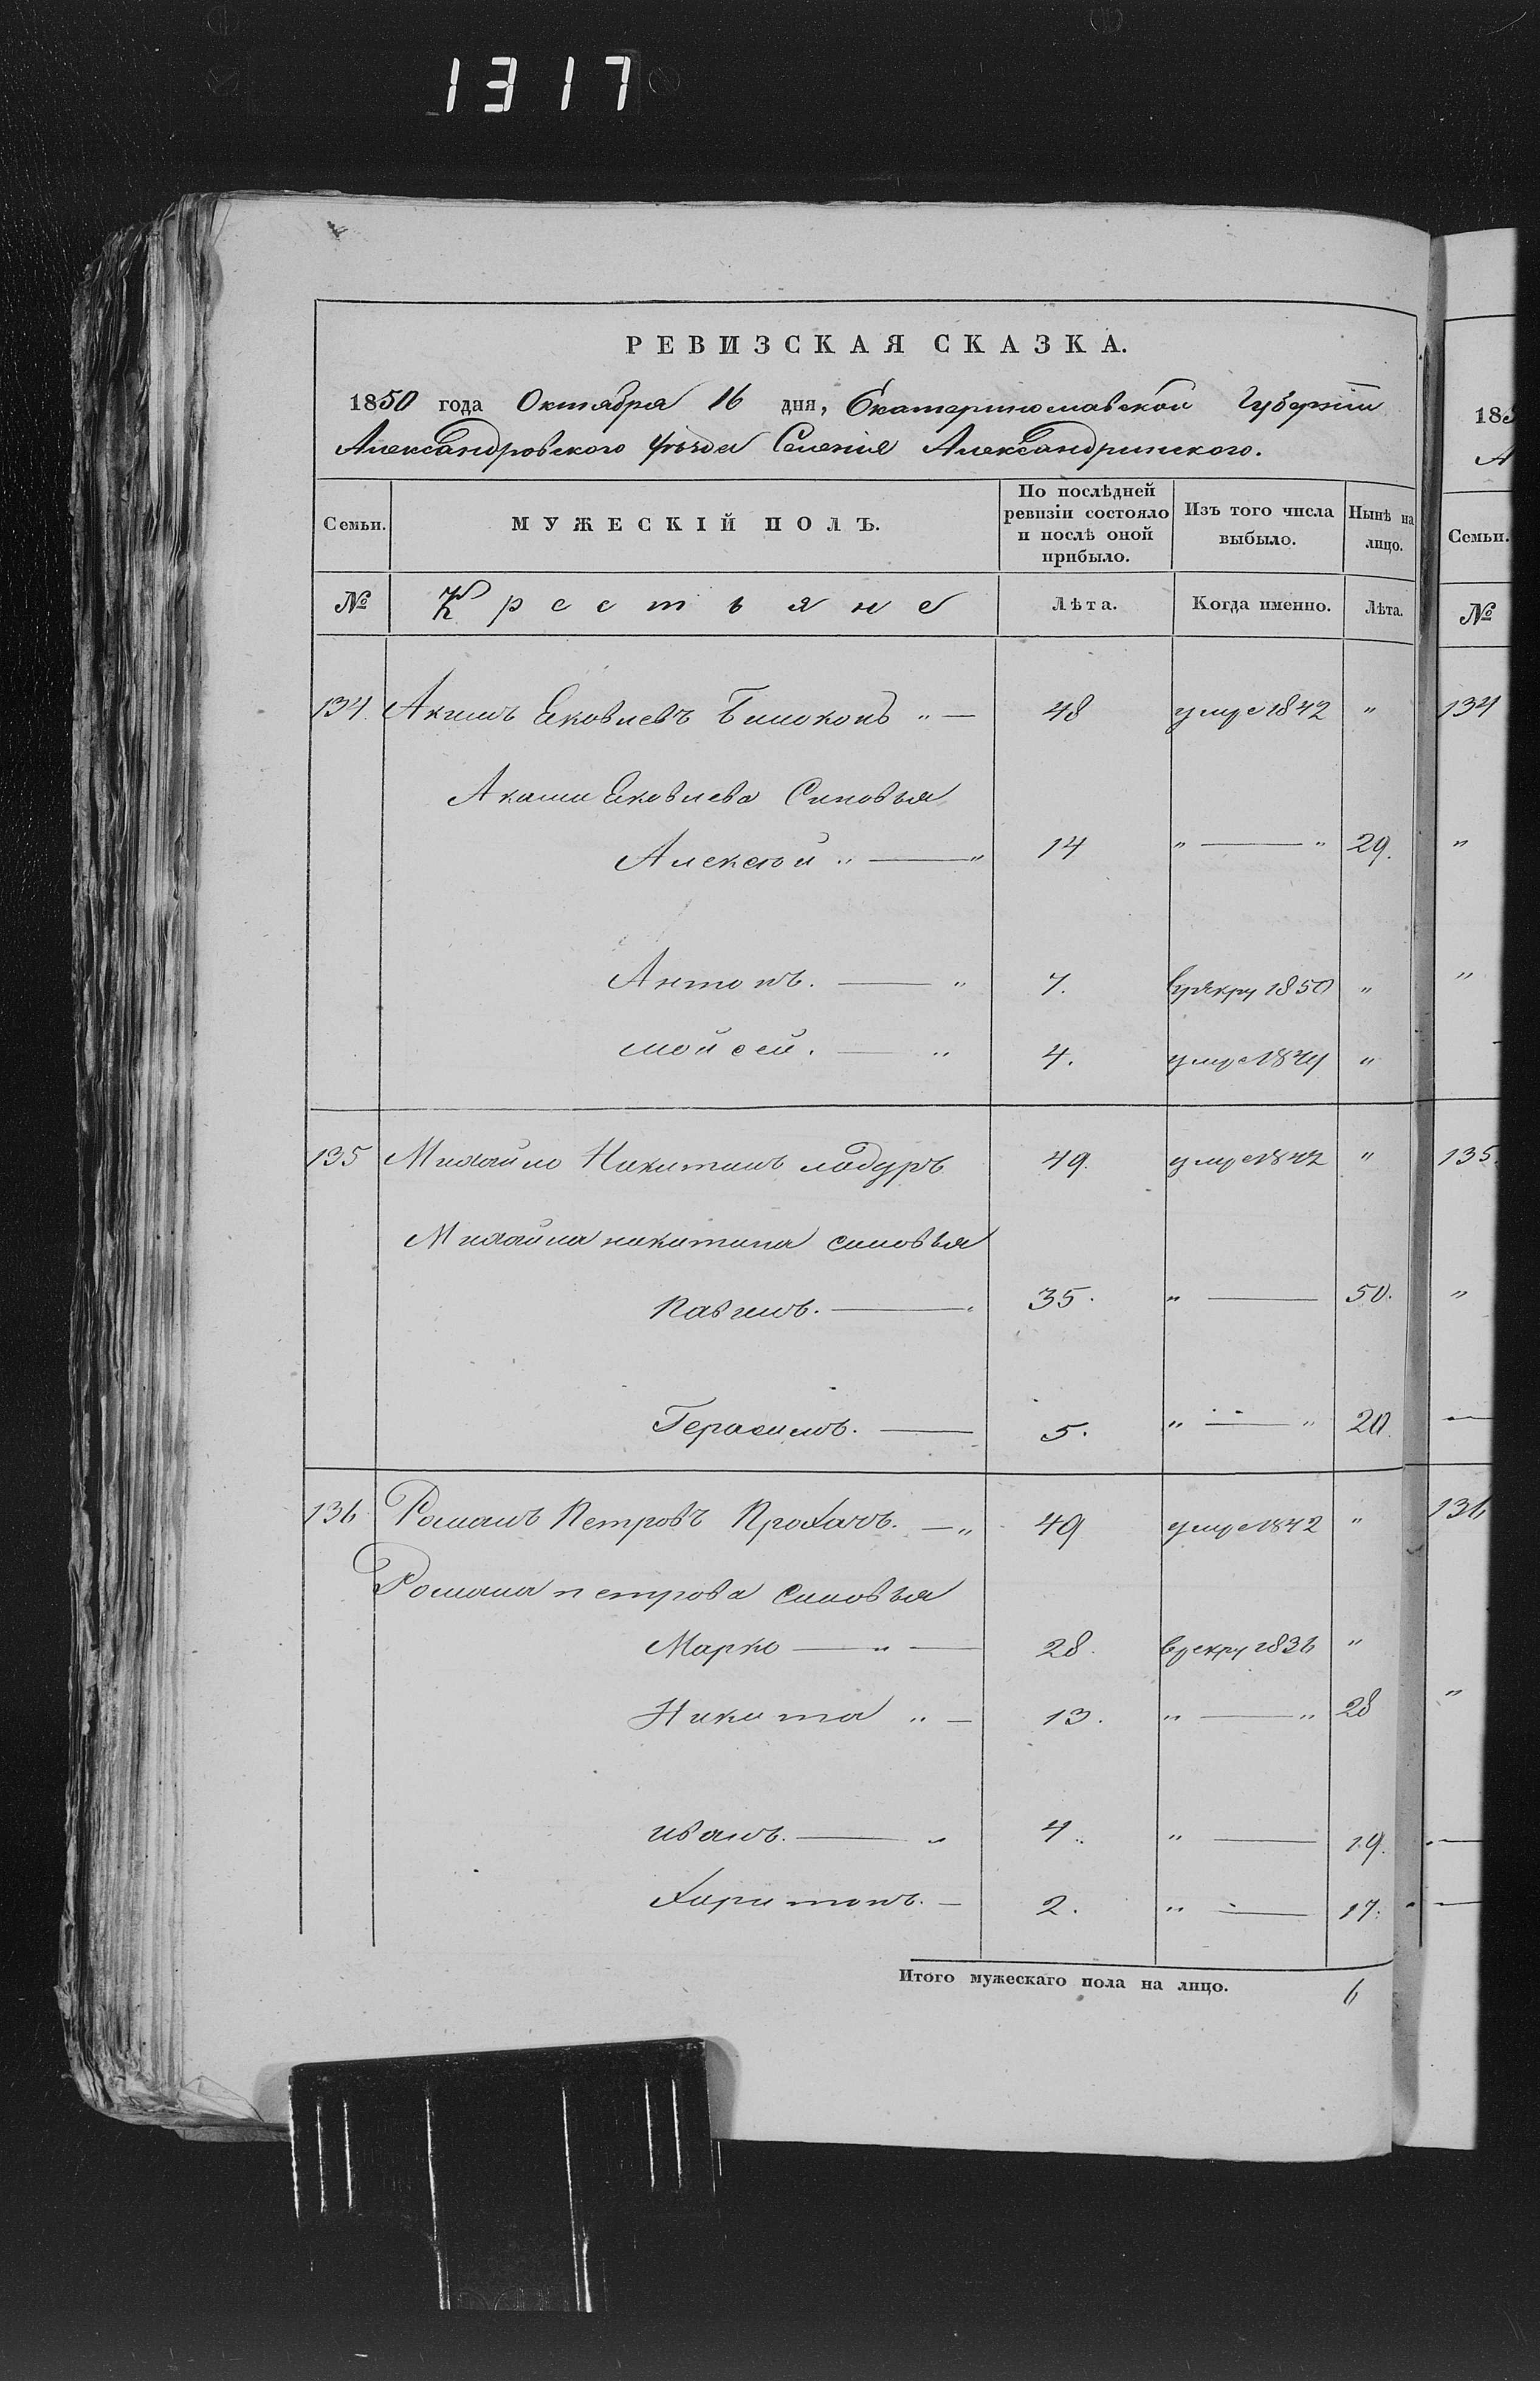 1317
РЕВИЗСКАЯ СКАЗКА.
1850 года Октября 16 дня, Екатеринославской Губерніи
Александровского уѣзда Селенія Александринского.
Семьи. МУЖЕСКІЙ ПОЛЪ. По послѣдней ревизіи состояло и послѣ оной прибыло. Изъ того числа выбыло. Нынѣ на лицо.
№ Крестьяне Лѣта. Когда именно. Лѣта.
134. Акимъ Яковлевъ Билоконъ " — 48 умре 1842 "
Акима Яковлева Синовья
Алексѣй " — " 14 " — " 29.
Антонъ. — " 7. 1850 "
Мойсей. — " 4. умре "
135 Михайло Никитинъ 49. умре "
Михайла никитина синовья
Павелъ. — 35. " — 50.
Герасимъ. — 5. " — " 20.
136 Романъ Петровъ — " 49 умре 1842 "
Романа петрова синовья
Марко — " — 28. врекру 1836 "
Никита " — 13. " — " 28
иванъ. — " 4. " — 19.
Харитонъ. — 2. " — 17.
Итого мужескаго пола на лицо. 6
185
А
Семьи.
№
134
"
"
135.
"
136
"